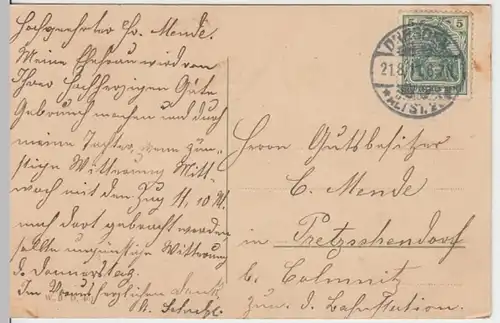 Hochgeehrter Hr. Mende.
Meine Ehefrau wird von
Ihrer hochherzigen Güte
Gebrauch machen und durch
meine Tochter, wenn gün-
stige Witterung Mitt-
woch mit den Zug 11,10 M.
nach dort gebracht werden
sollte ungünstige Witterung
d. Donnerstag.
Im Voraus herzlichen Dank
5 5
DRESDEN
21.8.11. 6-7N.
*ALTST.
Herrn Gutsbesitzer
C. Mende
in Pretzschendorf
b. Colmnitz
zun. d. Bahnstation.